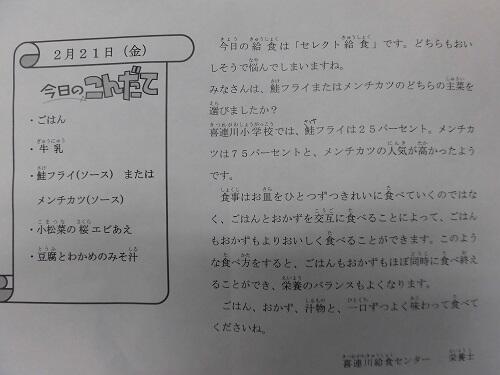 2月21日（金）
今日のこんだて
・ごはん
・牛乳
・鮭フライ(ソース)　または
メンチカツ(ソース)
・小松菜の桜エビあえ
・豆腐とわかめのみそ汁
今日の給食は「セレクト給食」です。どちらもおい
しそうで悩んでしまいますね。
みなさんは、鮭フライまたはメンチカツのどちらの主菜を
選びましたか？
喜連川小学校では、鮭フライは２５パーセント。メンチカ
ツは７５パーセントと、メンチカツの人気が高かったよう
です。
食事はお皿をひとつずつきれいに食べていくのではな
く、ごはんとおかずを交互に食べることによって、ごはん
もおかずもよりおいしく食べることができます。このよう
な食べ方をすると、ごはんもおかずもほぼ同時に食べ終え
ることができ、栄養のバランスもよくなります。
ごはん、おかず、汁物と、一口ずつよく味わって食べて
くださいね。
喜連川給食センター　栄養士